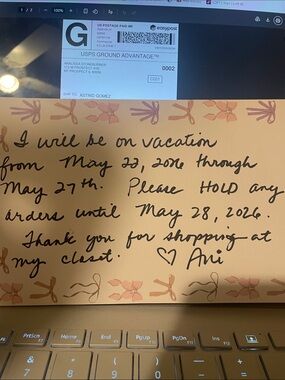 100%
G
US POSTAGE PAID IMI
easypost
USPS GROUND ADVANTAGE™
0002
C001
SHIP TO: ASTRID GOMEZ
I will be on vacation
from May 23, 2026 through
May 27th. Please HOLD any
orders until May 28, 2026.
Thank you for shopping at
my closet. ♡ Ani
PrtScn
Home
End
PgUp
PgDn
Ins
&
7
*
8
(
9
)
0
-
+
=